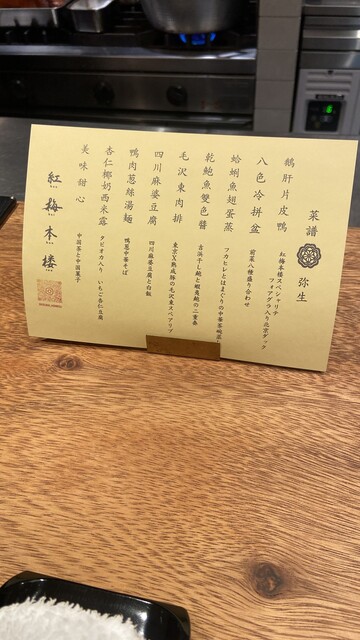 菜譜 弥生
鵝肝片皮鴨
紅梅本楼スペシャリテ
フォアグラ入り北京ダック
八色冷拼盆
前菜八種盛り合わせ
蛤蜊魚翅蛋蒸
フカヒレとはまぐりの中華茶碗蒸し
乾鮑魚雙色醬
吉浜干し鮑と蝦夷鮑の二重奏
毛沢東肉排
東京X熟成豚の毛沢東スペアリブ
四川麻婆豆腐
四川麻婆豆腐と白飯
鴨肉葱絲湯麺
鴨葱中華そば
杏仁椰奶西米露
タピオカ入り いちご杏仁豆腐
美味甜心
中国茶と中国菓子
紅梅本楼